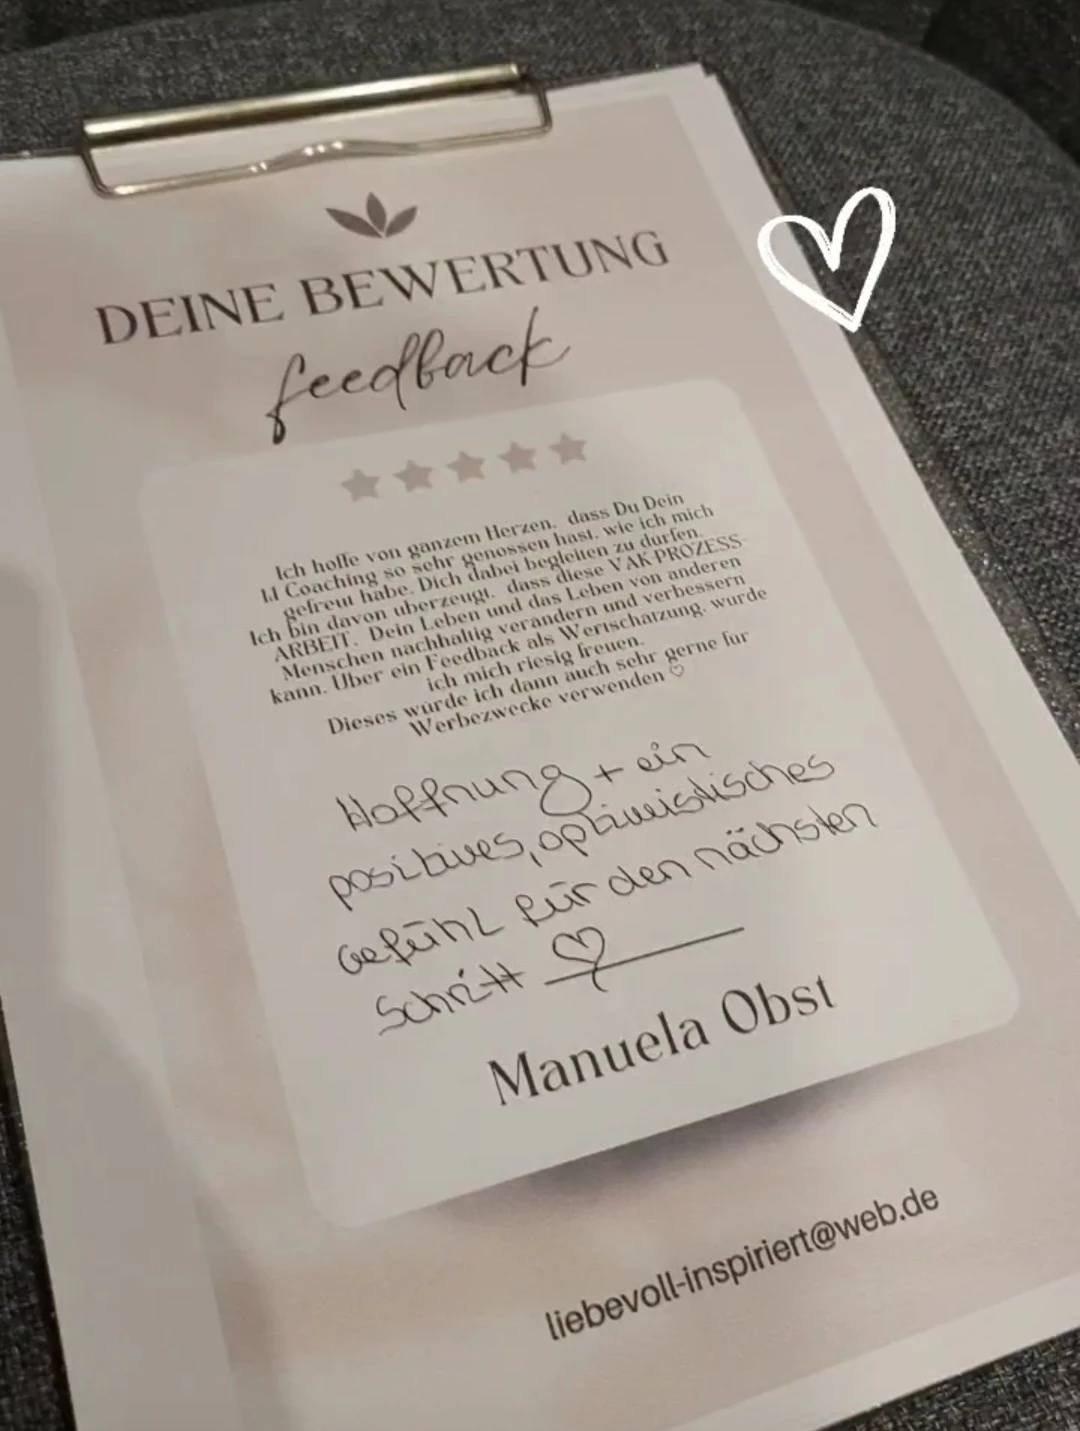 DEINE BEWERTUNG
feedback
Ich hoffe von ganzem Herzen, dass Du Dein
1:1 Coaching so sehr genossen hast, wie ich mich
gefreut habe, Dich dabei begleiten zu dürfen.
Ich bin davon überzeugt, dass diese VAK-PROZESS-
ARBEIT, Dein Leben und das Leben von anderen
Menschen nachhaltig verändern und verbessern
kann. Über ein Feedback als Wertschätzung, würde
ich mich riesig freuen.
Dieses würde ich dann auch sehr gerne für
Werbezwecke verwenden ♡
Hoffnung + ein
positives, optimistisches
Gefühl für den nächsten
Schritt ♡
Manuela Obst
liebevoll-inspiriert@web.de